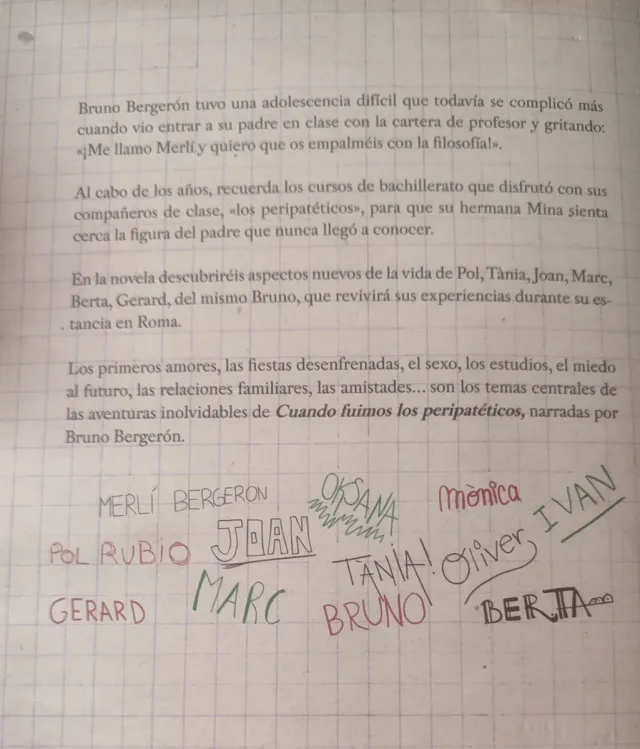 Bruno Bergerón tuvo una adolescencia difícil que todavía se complicó más
cuando vio entrar a su padre en clase con la cartera de profesor y gritando:
«¡Me llamo Merlí y quiero que os empalméis con la filosofía!».
Al cabo de los años, recuerda los cursos de bachillerato que disfrutó con sus
compañeros de clase, «los peripatéticos», para que su hermana Mina sienta
cerca la figura del padre que nunca llegó a conocer.
En la novela descubriréis aspectos nuevos de la vida de Pol, Tània, Joan, Marc,
Berta, Gerard, del mismo Bruno, que revivirá sus experiencias durante su es-
tancia en Roma.
Los primeros amores, las fiestas desenfrenadas, el sexo, los estudios, el miedo
al futuro, las relaciones familiares, las amistades... son los temas centrales de
las aventuras inolvidables de Cuando fuimos los peripatéticos, narradas por
Bruno Bergerón.
MERLÍ BERGERON OKSANA mònica IVAN
POL RUBIO JOAN TÀNIA! Oliver
GERARD MARC BRUNO BERTA